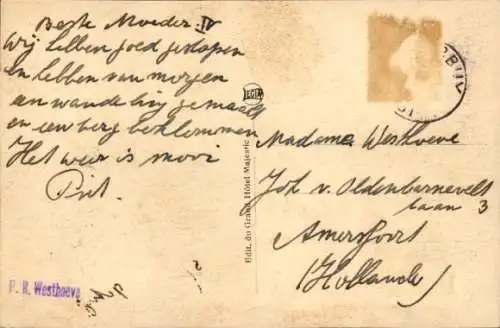 Beste Moeder. IV
Wij hebben goed geslapen
en hebben van morgen
een wandeling gemaakt
en een berg beklommen
Het weer is mooi
Piet.
P. R. Westhoeve
LEGIA
Edit. du Grand Hôtel Majestic
Madame Westhoeve
Joh v. Oldenbarnevelt
laan 3
Amersfoort
(Hollande)